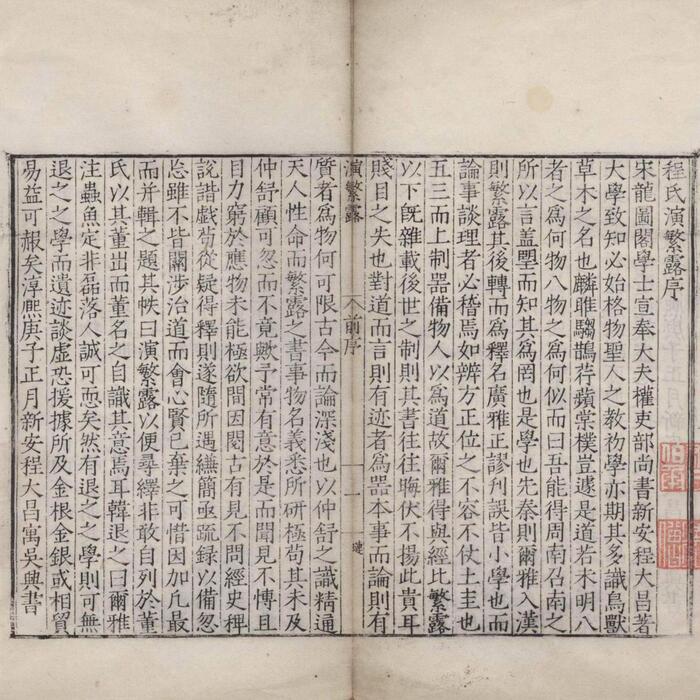 程氏演繁露序
宋龍圖閣學士宣奉大夫權吏部尚書新安程大昌著
大學致知必始格物聖人之教初學亦期其多識鳥獸
草木之名也麟雎騶鵲荇蘋棠樸豈遽是道若未明八
者之爲何物八物之爲何似而曰吾能得周南召南之
所以言蓋望而知其爲罔也是學也先秦則爾雅入漢
則繁露其後轉而爲釋名廣雅正謬刋誤皆小學也而
論事談理者必稽焉如辨方正位之不容不仗土圭也
五三而上制器備物人以爲道故爾雅得與經比繁露
以下旣雜載後世之制則其書往往晦伏不揚此貴耳
賤目之失也對道而言則有迹者爲器本事而論則有
演繁露 前序 一
質者爲物何可限古今而論深淺也以仲舒之識精通
天人性命而繁露之書事物名義悉所研極苟其未及
仲舒顧可忽而不竟歟予常有意於是而聞見不慱且
目力窮於應物未能極欲間因閱古有見不問經史稗
說諧戲苟從疑得釋則遂隨所遇縑簡亟疏録以備忽
忘雖不皆關涉治道而會心賢已棄之可惜因加凡最
而并輯之題其帙曰演繁露以便尋繹非敢自列於董
氏以其董出而董名之自識其意焉耳韓退之曰爾雅
注蟲魚定非磊落人誠可恧矣然有退之之學則可無
退之之學而遺迹談虛恐援據所及金根金銀或相貿
易益可赧矣淳熈庚子正月新安程大昌寓吳興書